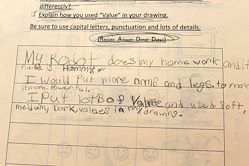 differently?
Explain how you used "Value" in your drawing.
Be sure to use capital letters, punctuation and lots of details.
(Restate Answer Detail Detail)
My Robot does my home work and it
name is Hammy
I would put more arms and legs to make
it more
I put lots of Value and used soft,
medium, Dark values in my drawing.